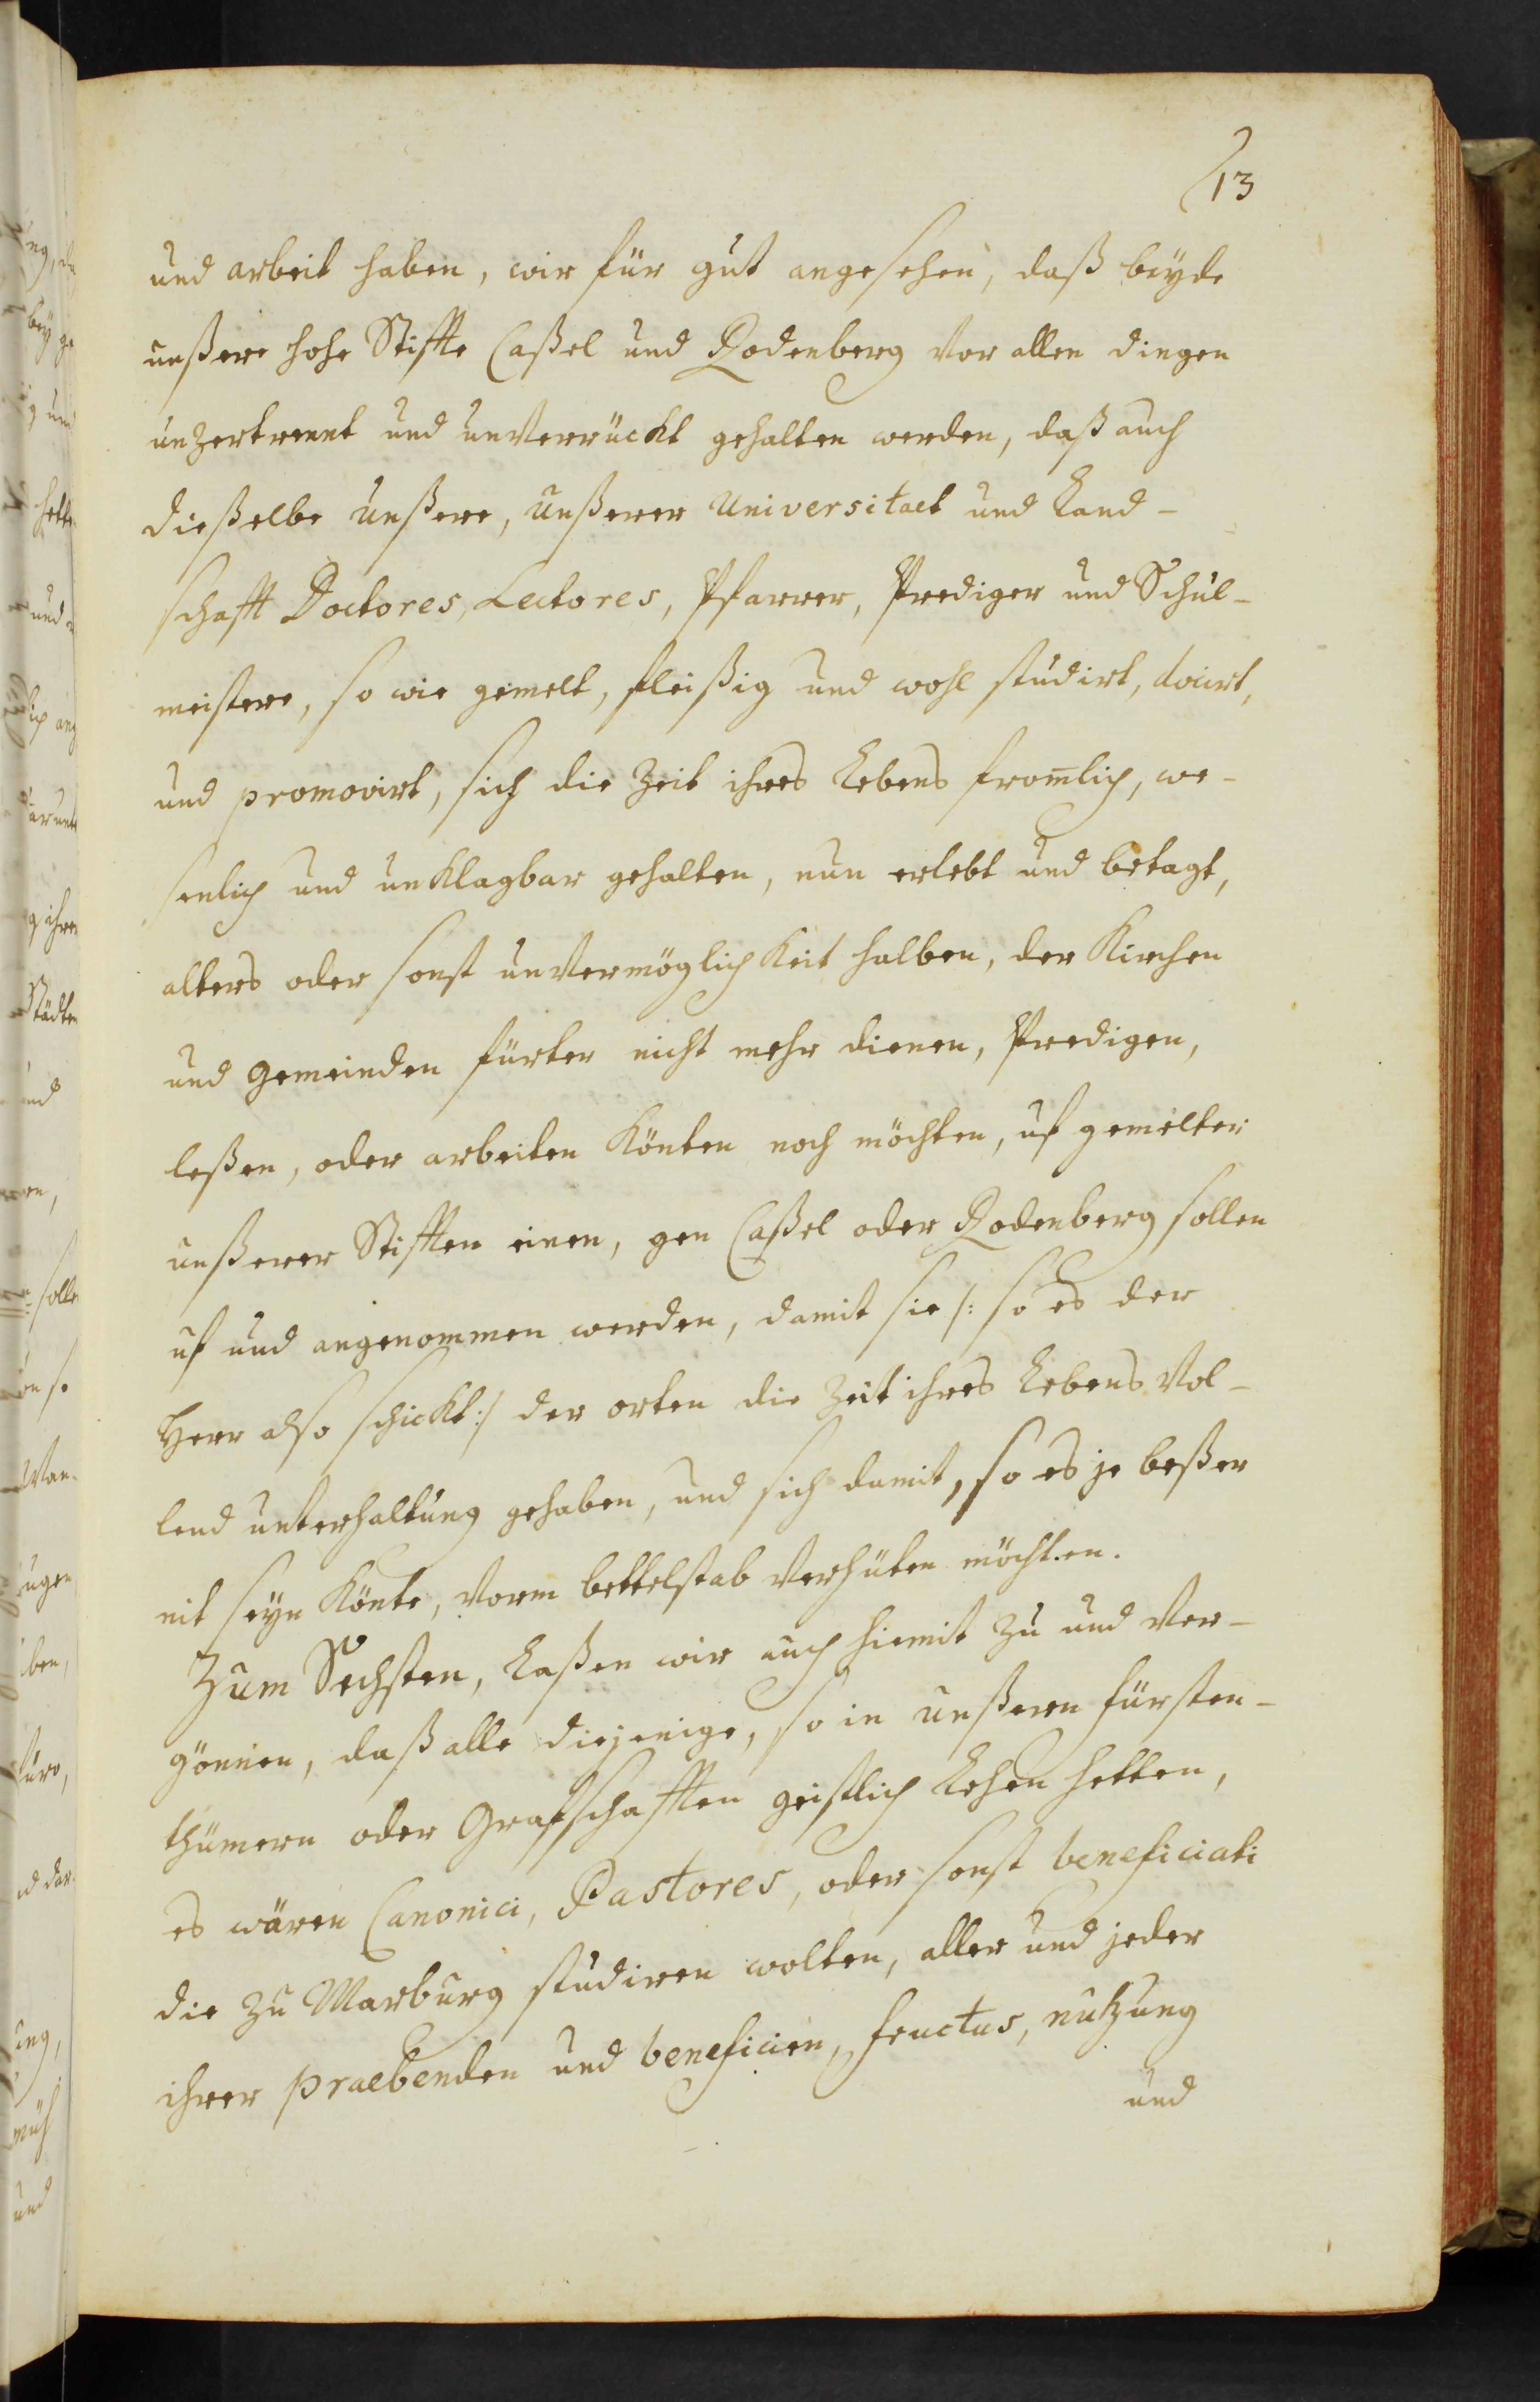 13
und arbeit haben, wir für gut angesehen, daß beyde
unßere hohe Stiffte Caßel und Rodenberg vor allen dingen
unzertrennt und unverrückt gehalten werden, daß auch
dießelbe unßere, unßerer Universitaet und Land-
schafft Doctores, Lectores, Pfarrer, Prediger und Schul-
meistere, so wie gemelt, fleißig und wohl studirt,
und promovirt, sich die Zeit ihres Lebens from̄lich, we-
senlich und unklagbar gehalten, nun erlebt und betagt,
alters oder sonst unvermöglichkeit halben, der Kirchen
und gemeinden fürter nicht mehr dienen, Predigen,
leßen, oder arbeiten könten noch möchten, uf gemelter
unßerer Stifften einen, gen Caßel oder Rodenberg sollen
uf und angenommen werden, damit sie /: so es der
Herr also schickt :/ der orten die Zeit ihres Lebens vol-
lend unterhaltung gehaben, und sich damit, so es je beßer
nit seyn könte, vorm bettelstab verhüten möchten.
Zum Sechsten, Laßen wir auch hiemit zu und ver-
gönnen, daß alle diejenige, so in unßeren fürsten-
thümern oder Grafschafften geistlich Lehen hetten,
es wären Canonici, Pastores, oder sonst beneficiati
die zu Marburg studiren wolten, aller und jeder
ihrer praebenden und beneficien, fructus, nutzung
und